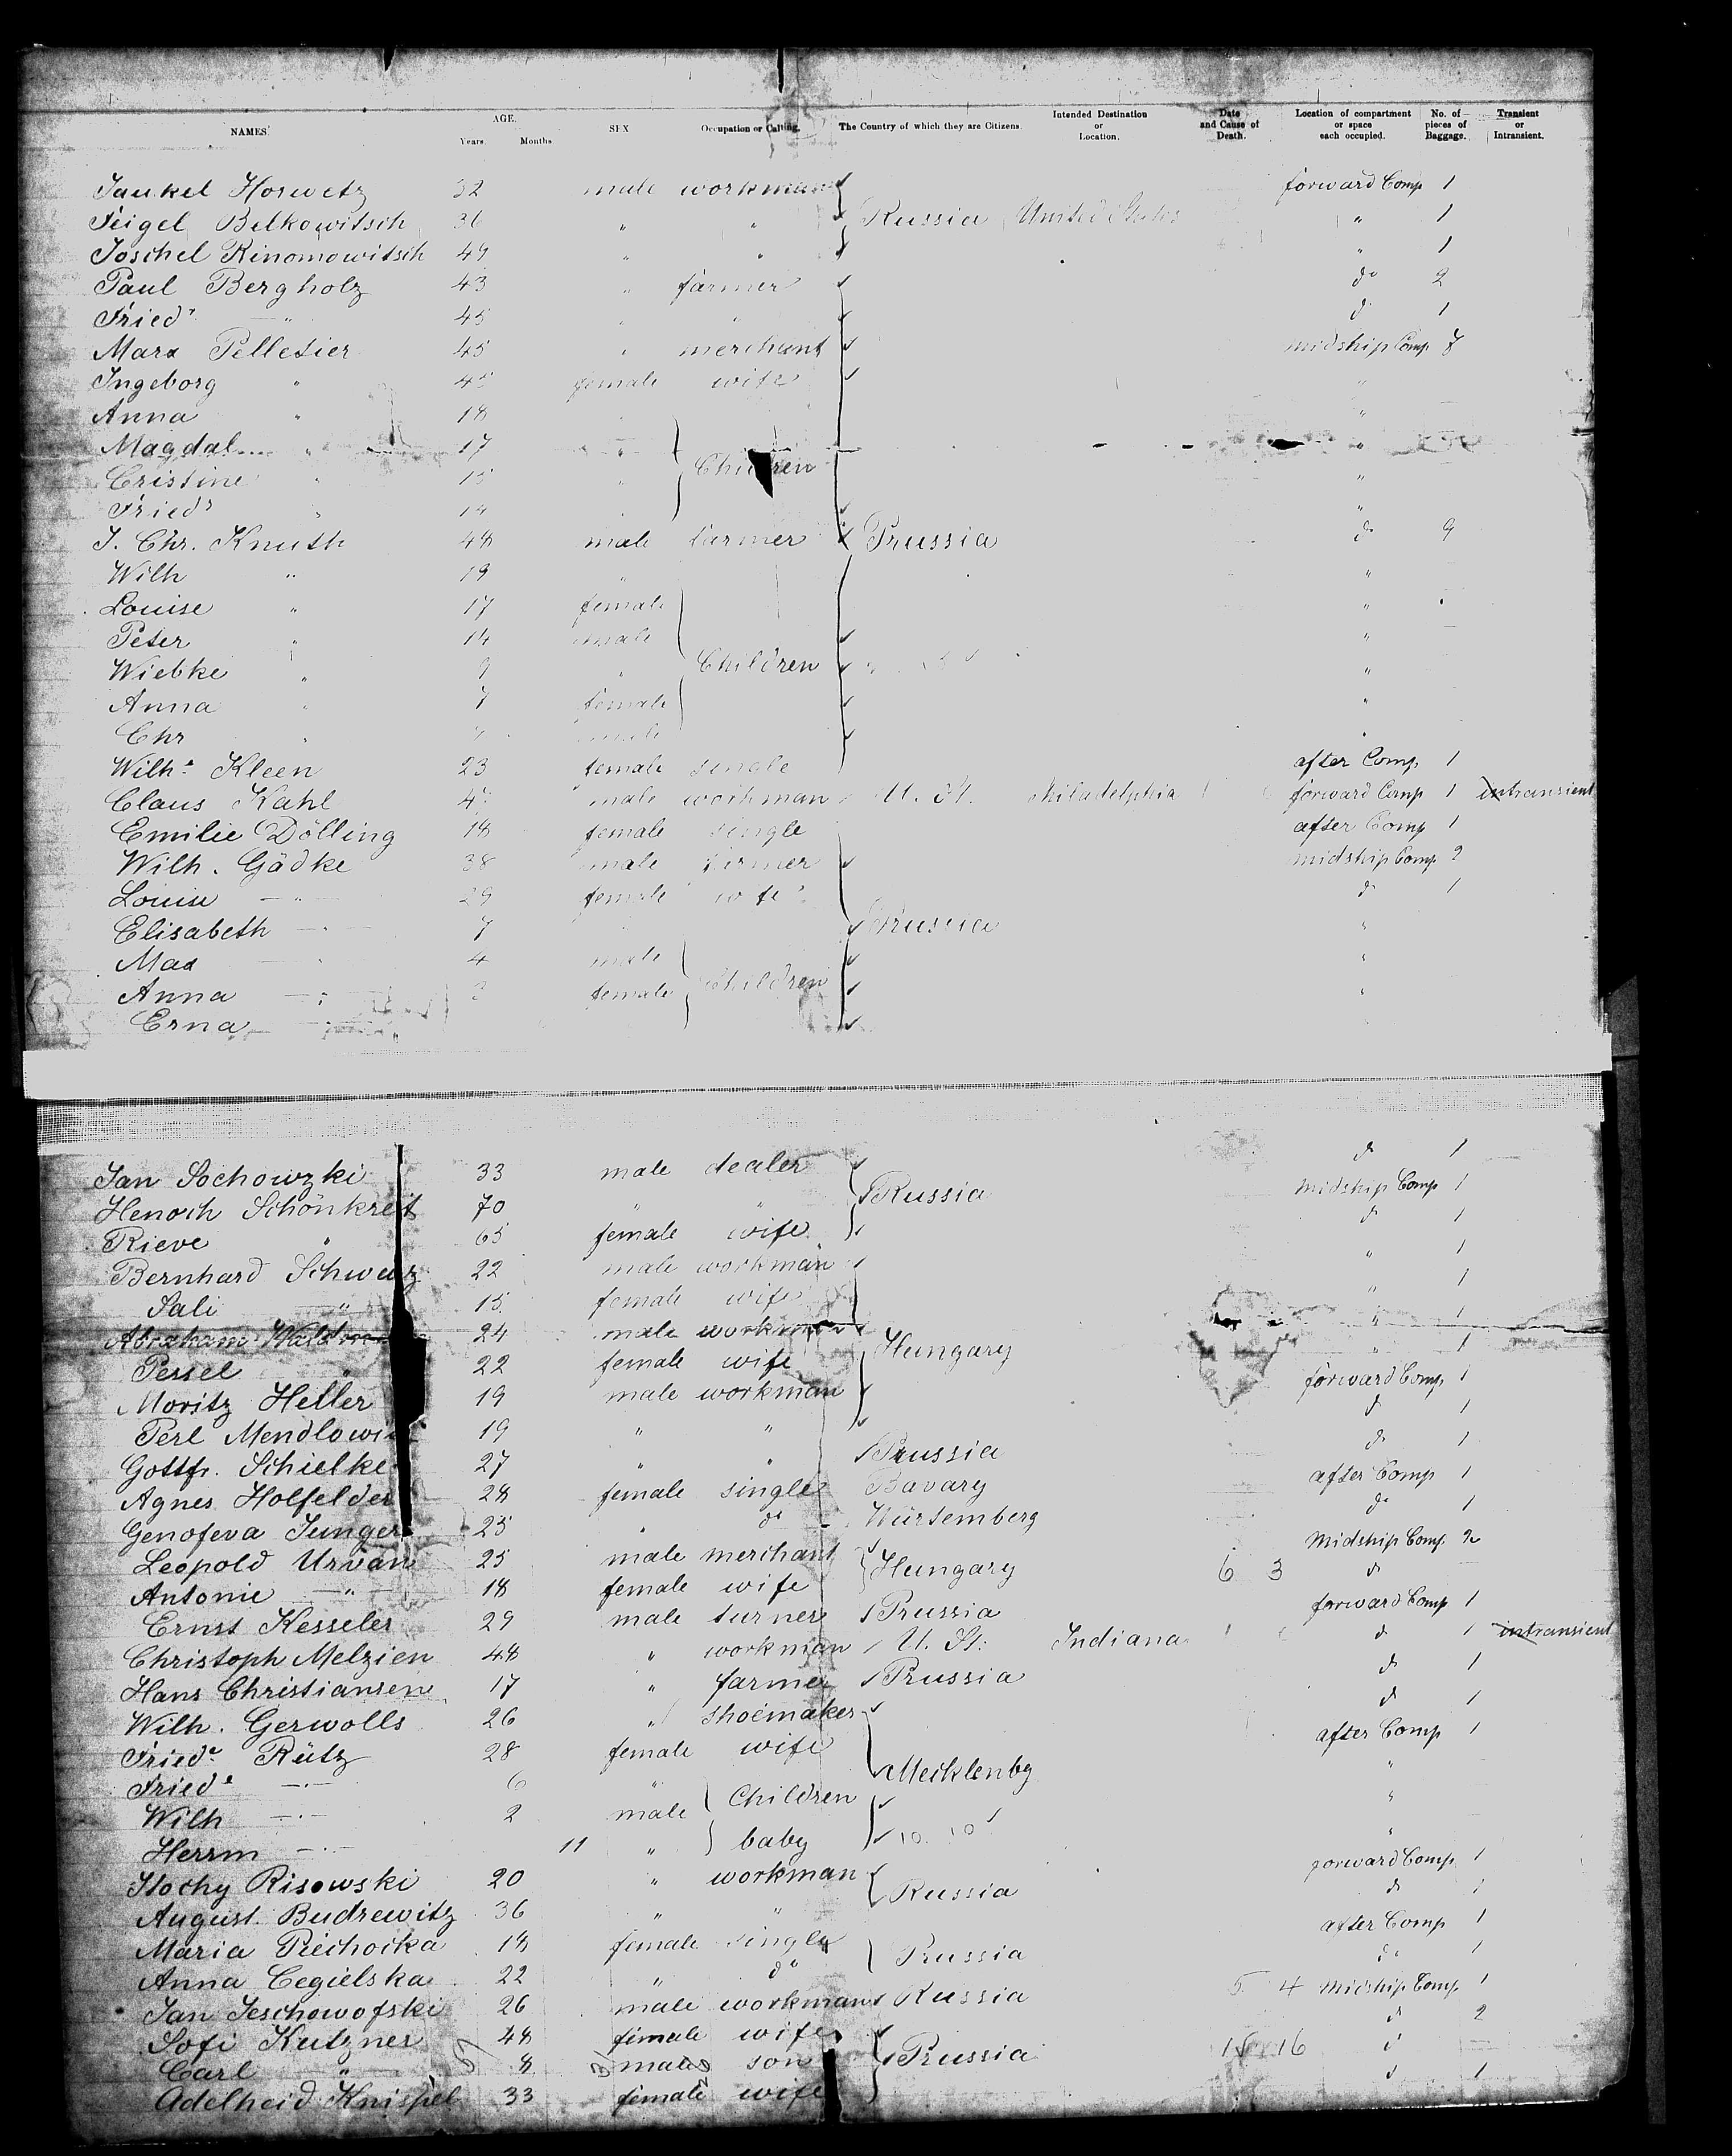 NAMES AGE. Years Months SEX Occupation or Calling. The Country of which they are Citizens. Intended Destination or Location. Date and Cause of Death. Location of compartment or space each occupied. No. of pieces of Baggage. Transient or Intransient.
Jankel Horwetz 32 male workman forward Comp 1
Feigel Belkowitsch 36 " " Russia United States " 1
Joschel Rinomowitsch 49 " " " 1
Paul Bergholz 43 " farmer do 2
Friedr " 45 " " do 1
Marx Pelletier 45 " merchant midship Comp 8
Ingeborg " 45 female wife "
Anna " 18 " "
Magdal... " 17 " "
Cristine " 15 " Children "
Friedr " 14 "
J. Chr. Knuth 48 male farmer Prussia do 9
Wilh " 19 " "
Louise " 17 female "
Peter " 14 male "
Wiebke " 9 " Children "
Anna " 7 female "
Chr " male "
Wilhe Kleen 23 female single after Comp 1
Claus Kahl male workman U. St. Philadelphia forward Comp 1 intransient
Emilie Dölling 18 female single after Comp 1
Wilh. Gädke 38 male farmer midship Comp 2
Louise " 29 female wife do 1
Elisabeth " 7 " Prussia "
Max " 4 male "
Anna " female Children "
Erna "
Jan Sochowzki 33 male dealer do 1
Henoch Schönkreit 70 " " Russia Midship Comp 1
Rieve " 65 female wife do 1
Bernhard Schwarz 22 male workman " 1
Sali " 15 female wife " 1
Abraham 24 male workman Hungary " 1
Pessel " 22 female wife " 1
Moritz Heller 19 male workman forward Comp 1
Perl Mendlowi 19 " " do 1
Gottfr. Schielke 27 " " Prussia do 1
Agnes Holfelder 28 female single Bavary after Comp 1
Genofeva Junger 25 " do Würtemberg do 1
Leopold Urvan 25 male merchant Hungary Midship Comp. 2
Antonie " 18 female wife 6 3 do
Ernst Kesseler 29 male turner Prussia forward Comp 1
Christoph Melzien 48 " workman U. St. Indiana do 1 intransient
Hans Christiansen 17 " farmer Prussia do 1
Wilh. Gerwolls 26 " shoemaker do 1
Friede Rütz 28 female wife Mecklenbg after Comp 1
Friede " 6 " Children "
Wilh " 2 male "
Herrm " 11 " baby 10. 10 "
Risowski 20 " workman Russia forward Comp 1
August. Budrewitz 36 " " do 1
Maria Piechocka 18 female single Prussia after Comp 1
Anna Cegielska 22 " do do 1
Jan Jeschowofski 26 male workman Russia 5 4 Midship Comp 1
Sofi Kutzner 48 female wife do 2
Carl " 8 male son Prussia 15 16 do
Adelheid Knispel 33 female wife do 1